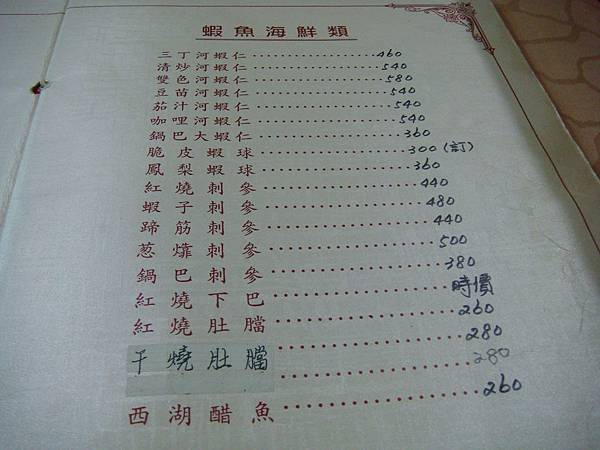 蝦魚海鮮類
三丁河蝦仁⋯⋯460
清炒河蝦仁⋯⋯540
雙色河蝦仁⋯⋯580
豆苗河蝦仁⋯⋯540
茄汁河蝦仁⋯⋯540
咖哩河蝦仁⋯⋯540
鍋巴大蝦仁⋯⋯360
脆皮蝦球⋯⋯300(訂)
鳳梨蝦球⋯⋯360
紅燒刺參⋯⋯440
蝦子刺參⋯⋯480
蹄筋刺參⋯⋯440
葱㸆刺參⋯⋯500
鍋巴刺參⋯⋯380
紅燒下巴⋯⋯時價
紅燒肚檔⋯⋯260
干燒肚檔⋯⋯280
⋯⋯280
西湖醋魚⋯⋯260